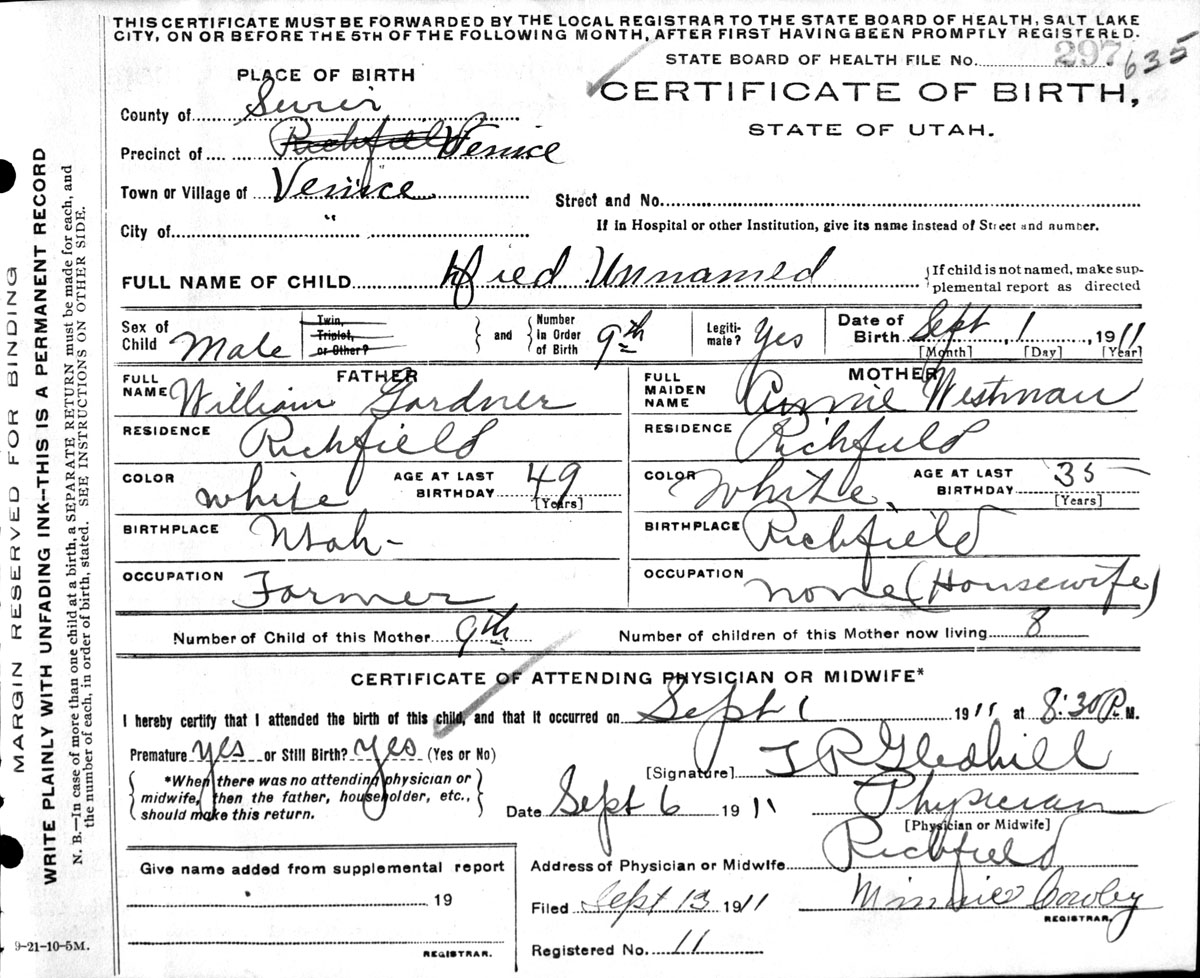 THIS CERTIFICATE MUST BE FORWARDED BY THE LOCAL REGISTRAR TO THE STATE BOARD OF HEALTH, SALT LAKE
CITY, ON OR BEFORE THE 5TH OF THE FOLLOWING MONTH, AFTER FIRST HAVING BEEN PROMPTLY REGISTERED.
STATE BOARD OF HEALTH FILE No. 297 635
PLACE OF BIRTH
CERTIFICATE OF BIRTH,
STATE OF UTAH.
County of Sevier
Precinct of Richfield Venice
Town or Village of Venice
Street and No.
City of "
If in Hospital or other Institution, give its name instead of Street and number.
FULL NAME OF CHILD Unnamed
If child is not named, make sup-
plemental report as directed
Sex of Child Male
Twin, Triplet, or Other?
and
Number in Order of Birth 9th
Legiti-mate? Yes
Date of Birth Sept, 1, 1911
[Month] [Day] [Year]
FATHER
FULL NAME William Gardner
RESIDENCE Richfield
COLOR white AGE AT LAST BIRTHDAY 49 [Years]
BIRTHPLACE Utah-
OCCUPATION Farmer
MOTHER
FULL MAIDEN NAME Annie Westman
RESIDENCE Richfield
COLOR White AGE AT LAST BIRTHDAY 35 [Years]
BIRTHPLACE Richfield
OCCUPATION none (Housewife)
Number of Child of this Mother 9th Number of children of this Mother now living 8
CERTIFICATE OF ATTENDING PHYSICIAN OR MIDWIFE*
I hereby certify that I attended the birth of this child, and that it occurred on Sept 1 1911 at 8:30 P.M.
Premature yes or Still Birth? yes (Yes or No)
*When there was no attending physician or
midwife, then the father, householder, etc.,
should make this return.
[Signature] T R Gledhill
Date Sept 6 1911 Physician
[Physician or Midwife]
Address of Physician or Midwife Richfield
Give name added from supplemental report
19
REGISTRAR.
Filed Sept 13 1911 Minnie Cowley
REGISTRAR.
Registered No. 11
9-21-10-5M.
MARGIN RESERVED FOR BINDING
WRITE PLAINLY WITH UNFADING INK--THIS IS A PERMANENT RECORD
N. B.—In case of more than one child at a birth, a SEPARATE RETURN must be made for each, and
the number of each, in order of birth, stated. SEE INSTRUCTIONS ON OTHER SIDE.